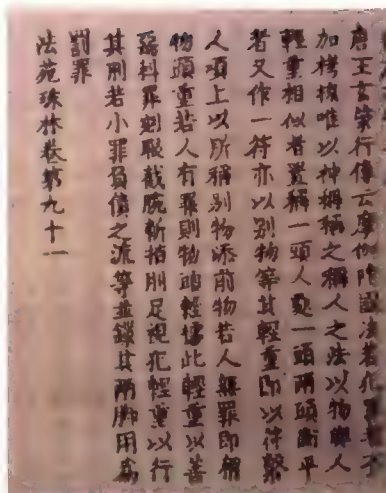 唐王玄策行傳云摩伽陀國法若犯罪者不
加拷掠唯以神稱稱之稱人之法以物與人
輕重相似者置稱一頭人處一頭兩頭衡平
者又作一符亦以別物等其輕重即以符繫
人項上以所稱別物添前物若人無罪即稱
物頭重若人有罪則物頭輕據此輕重以善
惡科罪剜眼截腕斬指刖足視犯輕重以行
其刑若小罪負債之流等並鏁其兩脚用為
罰罪
法苑珠林卷第九十一